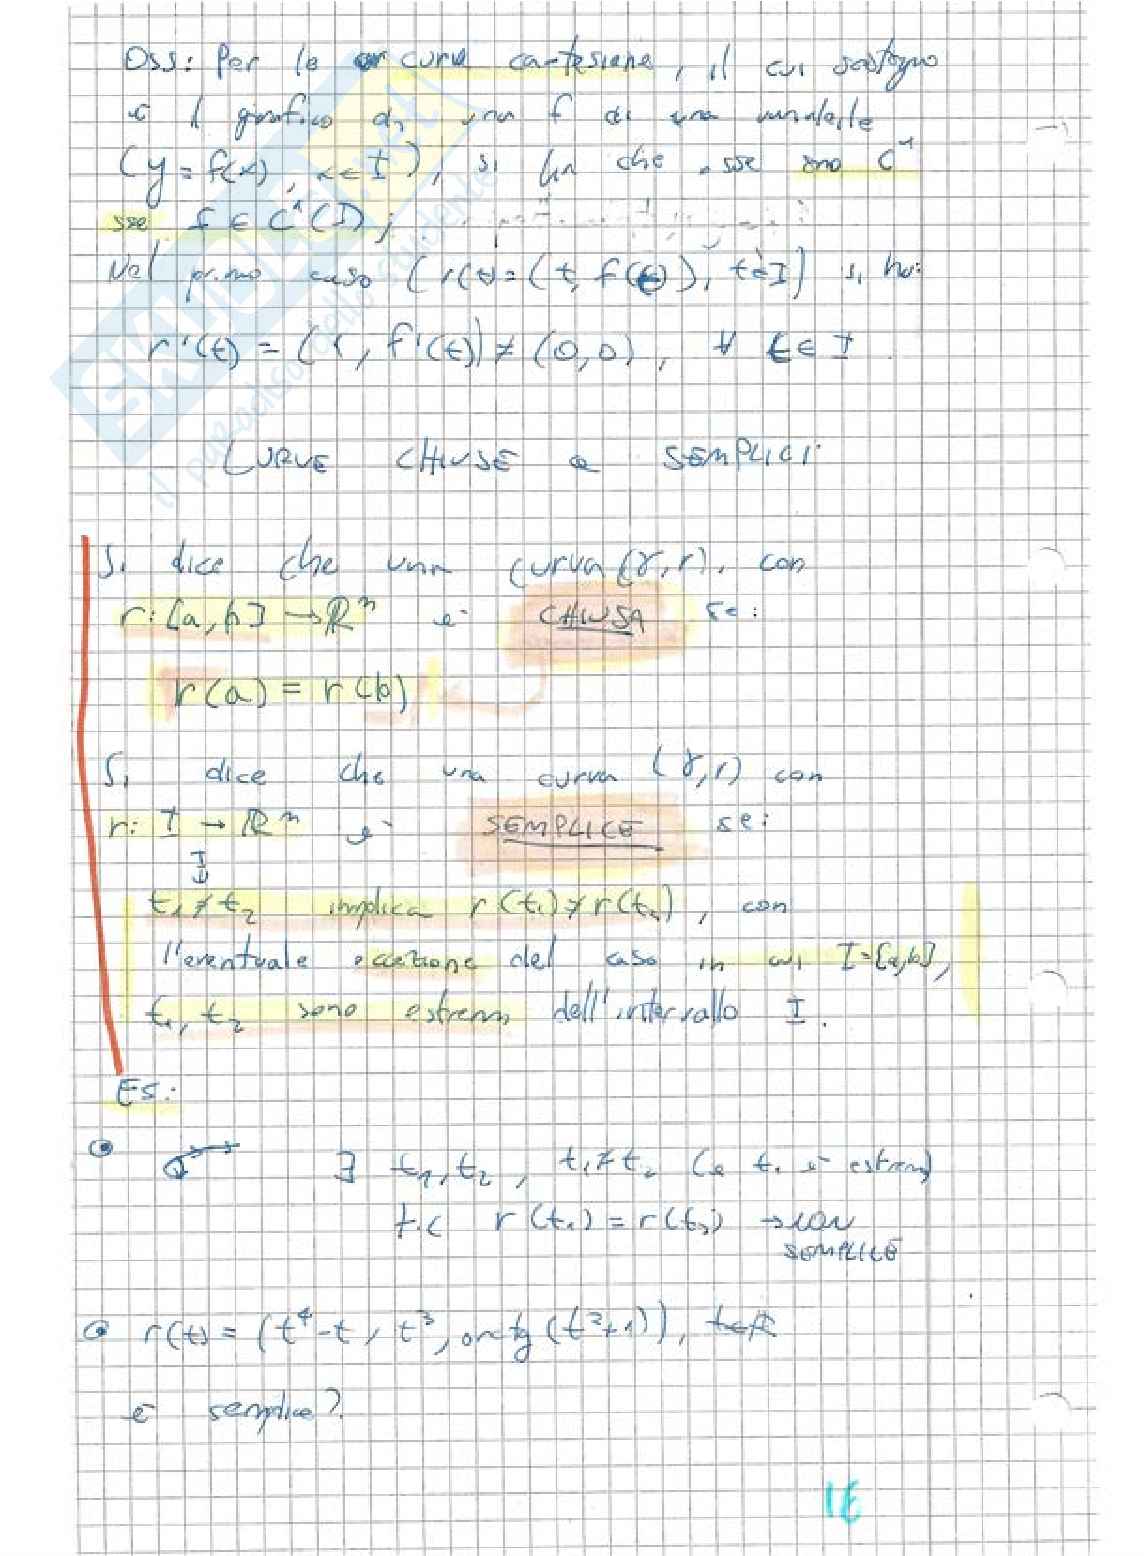 Oss: Per le curve cartesiane, il cui sostegno
è il grafico di una f di una variabile
(y = f(x), x ∈ I), si ha che esse sono C¹
sse f ∈ C¹(I);
Nel primo caso (r(t) = (t, f(t)), t ∈ I) si ha:
r'(t) = (1, f'(t)) ≠ (0,0), ∀ t ∈ I
CURVE CHIUSE e SEMPLICI
Si dice che una curva (γ, r), con
r: [a, b] → ℝⁿ è CHIUSA se:
r(a) = r(b)
Si dice che una curva (γ, r) con
r: I → ℝⁿ è SEMPLICE se:
t₁ ≠ t₂ implica r(t₁) ≠ r(t₂), con
l'eventuale eccezione del caso in cui I = [a,b],
t₁, t₂ sono estremi dell'intervallo I.
ES:
∃ t₁, t₂, t₁ ≠ t₂ (e t₁ è estremo)
t.c. r(t₁) = r(t₂) → non
SEMPLICE
r(t) = (t⁴ - t, t³, arctg (t²+1)), t ∈ ℝ
è semplice?
16
SKUOLA.net
il paradiso dello studente